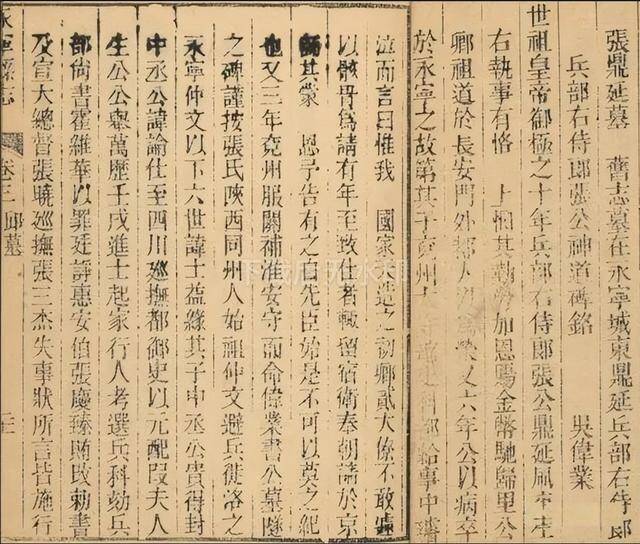 張鼎延墓 舊志墓在永寧城東鼎延兵部右侍郎
兵部右侍郎張公神道碑銘 吳偉業
世祖皇帝御極之十年兵部右侍郎張公鼎延
右執事有恪 上憫其勤勞加恩賜金幣馳歸里公
卿祖道於長安門外都人 又六年公以病卒
於永寧之故第其子兗州 吏科都給事中
泣而言曰惟我 國家 造之初卿貳大僚不敢遽
以骸骨爲請有年至致仕者輒留宿衛奉朝請於京
師其蒙 恩予告有之自先臣始是不可以莫之紀
也又三年兗州服闋補淮安守而命偉業書公墓隧
之碑謹按張氏陝西同州人始祖仲文避兵徙洛之
永寧仲文以下六世諱士益緣其子中丞公貴得封
中丞公諱論仕至四川巡撫都御史以元配段夫人
生公公舉萬歷壬戌進士起家行人考選兵科劾兵
部尚書霍維華以罪廷諍惠安伯張慶臻賄改勅書
及宣大總督張曉巡撫張三杰失事狀所言皆施行
永寧縣志 卷三 邱墓